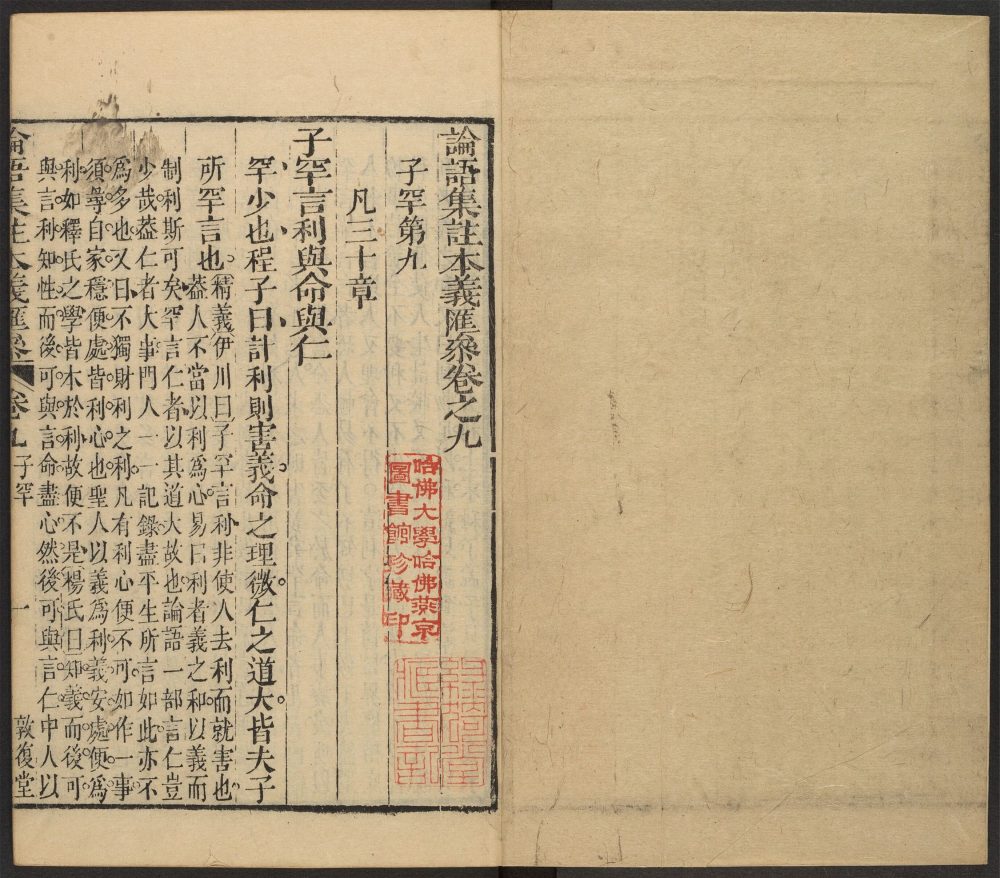 論語集註本義匯叅卷之九
子罕第九
凡三十章
子罕言利與命與仁
罕少也程子曰計利則害義命之理微仁之道大皆夫子
所罕言也。
精義伊川曰子罕言利非使人去利而就害也
葢人不當以利爲心易曰利者義之和以義而
制利斯可矣罕言仁者以其道大故也論語一部言仁豈
少哉葢仁者大事門人一一記錄盡平生所言如此亦不
爲多也又曰不獨財利之利凡有利心便不可如作一事
須尋自家穩便處皆利心也聖人以義爲利義安處便爲
利如釋氏之學皆本於利故便不是楊氏曰知義而後可
與言利知性而後可與言命盡心然後可與言仁中人以
論語集註本義匯叅 卷九 子罕 一 敦復堂
哈佛大學哈佛燕京
圖書館珍藏印